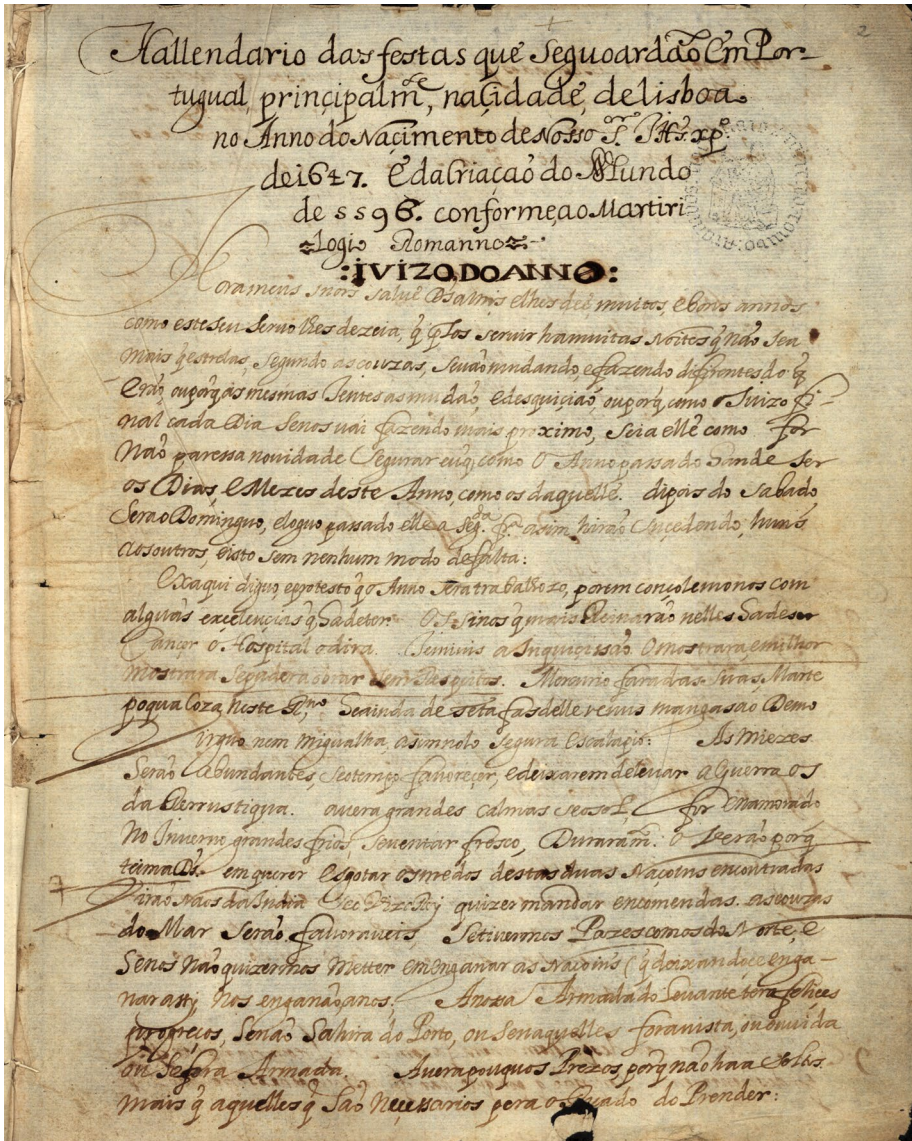 2
Kallendario das festas que Seguoardão Em Por-
tugual, principalmte, na Çidade, de lisboa.
no Anno do Naçimento de Nosso Sr. IHs. xpo.
de 1647. E da Criação do Mundo
de 5596. conforme, ao Martiri
Logio Romanno
:IVIZO.DO ANNO:
Hora meus snors salve Ds almas e lhes deê muitos, e bons annos
como este seu servo lhes dezeia, q̃ os servir ha muitas Noites q̃ não sou
mais q̃ estrelas, segundo as couzas, se vão mudando, e fazendo diferentes do q̃
Erão, ou porq̃ as mesmas Jentes as mudão, e desquição, ou porq̃, como o Juizo fi-
nal cada Dia se nos vai fazendo mais proximo, seia elle como for
Não paressa novidade segurar eu q̃, como o Anno passado hande ser
os Dias, e Mezes deste Anno, como os daquelle. dipois do Sabado
Serao Dominguo, e loguo passado elle a segda. fra. asim hirão suçedendo, huns
aos outros, e isto sem nenhum modo de falta:
Exaqui diguo, e protesto q̃ o Anno sera trabalhozo, porem consolemonos com
alguãs exçelençias q̃ hade ter. Os Sinos q̃ mais Reinarão nelles hade ser
Cançer o Hospital o dira. Jeminis a Inquizisão o mostrara, e milhor
mostrara se poderá obrar sem Resquitos. Mercurio fara das suas, Marte
poqua Coza, neste Rno, se ainda de setafas delle venus mangas ao Demo
nem migualha, asim nolo segura Escalagio: As Miezes
Serão Abundantes, se o tempo favoreçer, e deixarem de levar a Guerra os
da Rustiqua. avera grandes Calmas se o sol, for Enamorado
No Inverno grandes frios, se ventar fresco, Duraram o Verão porq̃
teima Ds. em querer esgotar os medos destas duas Naçoins encontradas
irão Naos da India se o Vizo Rej quizer mandar encomendas. as couzas
do Mar Serão favoraveis, Se tivermos Pazes com os do Norte, e
Se nos Não quizermos metter em enganar as Naçoins (q̃ deixandoçe enga-
nar assj nos enganão a nos. A nossa Armada do Levante tera felices
progreços, se não Sahira do Porto, ou se naquelles for avista, ou ouvida
ou se fora Armada. Avera pouquos Prezos, porq̃ não ha a Soltos
mais q̃ aquelles q̃ São Neçessarios pera o do Prender: